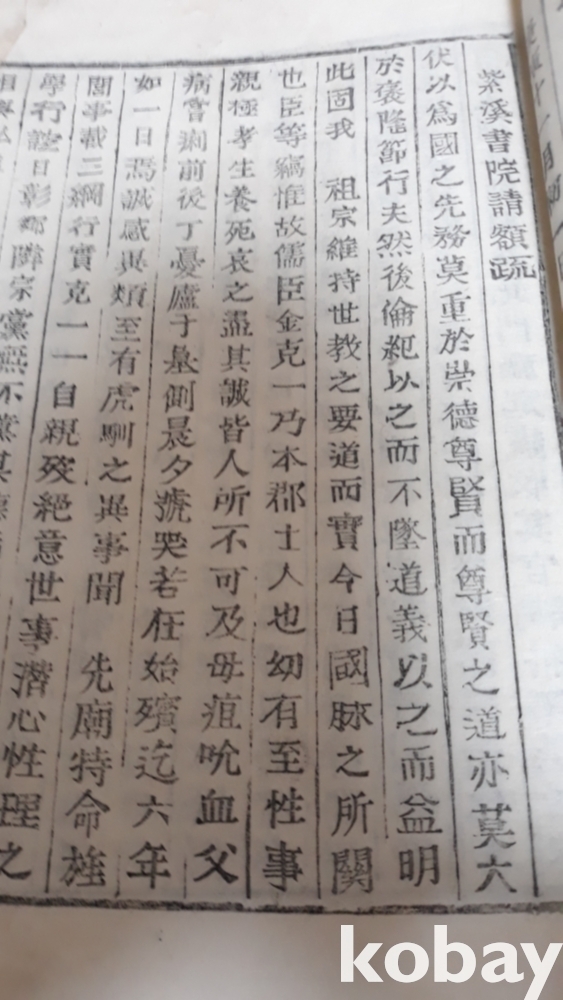 紫溪書院請額疏
伏以爲國之先務莫重於崇德尊賢而尊賢之道亦莫大
於褒隆節行夫然後倫紀以之而不墜道義以之而益明
此固我 祖宗維持世教之要道而實今日國脉之所關
也臣等竊惟故儒臣金克一乃本郡士人也幼有至性事
親極孝生養死哀之盡其誠皆人所不可及母疽吮血父
病嘗痢前後丁憂廬于墓側晨夕號哭若在始殯迄六年
如一日焉誠感異類至有虎馴之異事聞 先廟特命旌
閭事載三綱行實克一一自親歿絶意世事潛心性理之
學行誼日彰鄕隣宗黨無不薰其德
kobay